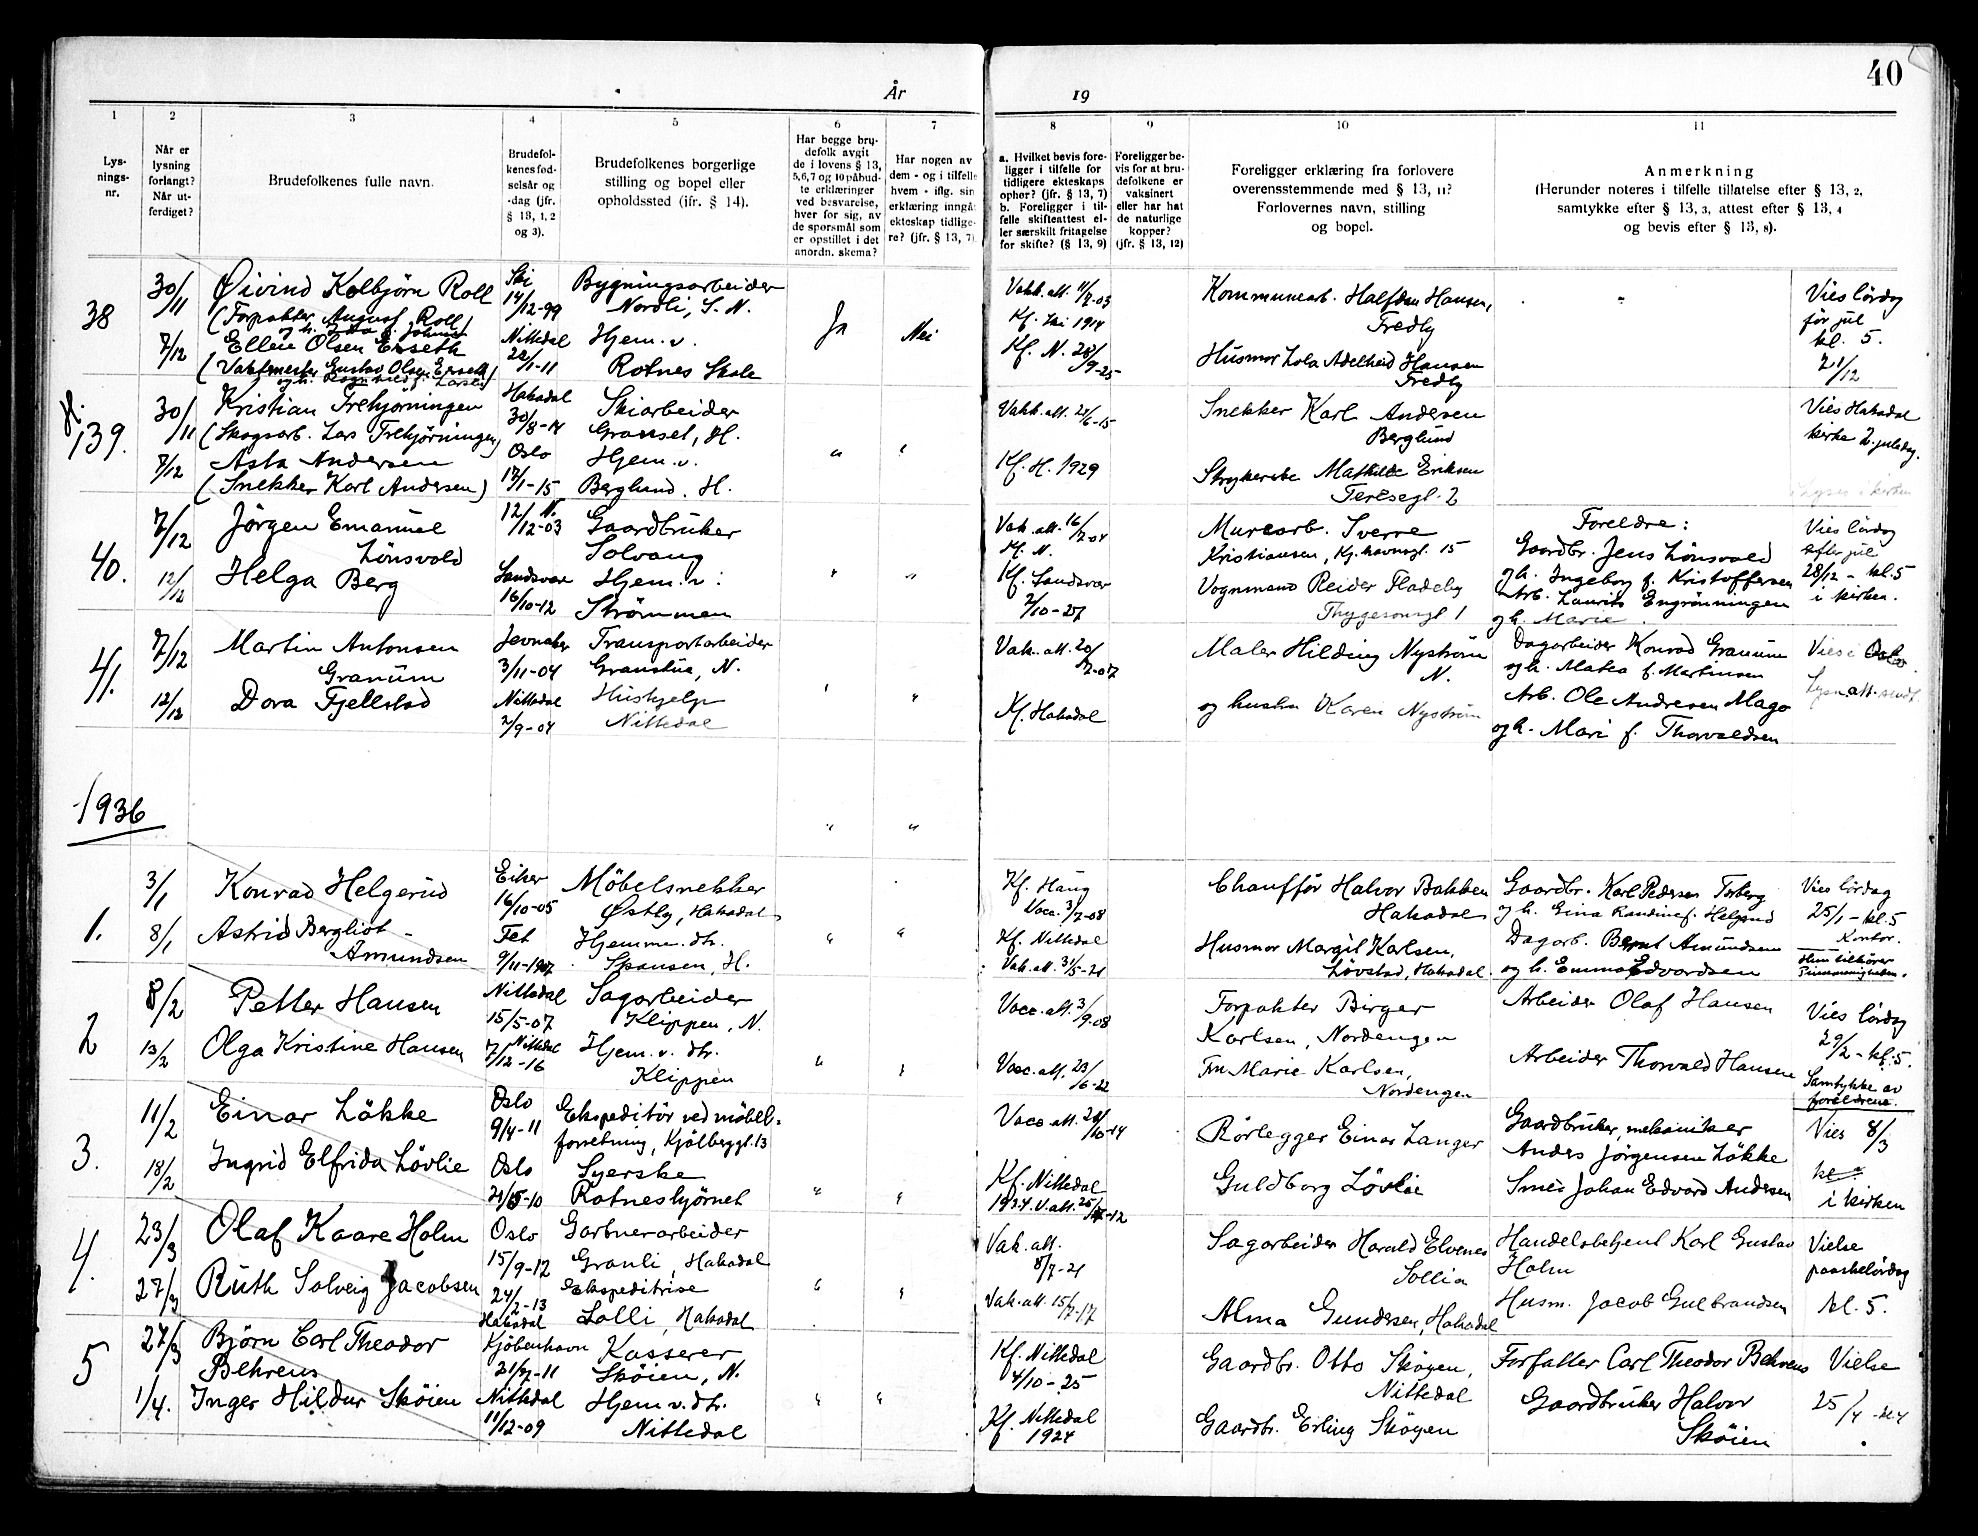 40
År
19
1
2
3
4
5
6
7
8
9
10
11
Lys-
nings-
nr.
Når er
lysning
forlangt?
Når ut-
ferdiget?
Brudefolkenes fulle navn.
Brudefol-
kenes fød-
selsår og
-dag (jfr.
§ 13, 1, 2
og 3).
Brudefolkenes borgerlige
stilling og bopel eller
opholdssted (jfr. § 14).
Har begge bru-
defolk avgit
de i lovens § 13,
5, 6, 7 og 10 påbud-
te erklæringer
ved besvarelse,
hver for sig, av
de spørsmål som
er opstillet i det
anordn. skema?
Har nogen av
dem - og i tilfelle
hvem - iflg. sin
erklæring inngå
ekteskap tidlige-
re? (jfr. § 13, 7)
a. Hvilket bevis fore-
ligger i tilfelle for
tidligere ekteskaps
ophør? (jfr. § 13, 7)
b. Foreligger i til-
felle skifteattest el-
ler særskilt fritagelse
for skifte? (§ 13, 9)
Foreligger be-
vis for at bru-
defolkene er
vaksinert
eller har hat
de naturlige
kopper?
(jfr. § 13, 12)
Foreligger erklæring fra forlovere
overensstemmende med § 13, 11?
Forlovernes navn, stilling
og bopel.
Anmerkning
(Herunder noteres i tilfelle tillatelse efter § 13, 2,
samtykke efter § 13, 3, attest efter § 13, 4
og bevis efter § 13, 8).
38
30/11
7/12
Øivind Kolbjørn Roll
(Forpakter August Roll
Ellen Olsen Erseth
(Vaktmester Gustav Olsen Erseth
Ski
14/12-99
Nittedal
22/1-11
Bygningsarbeider
Nordli, S. N.
Hjem. v.
Rotnes Skole
Ja
Nei
Vakk. att. 11/7-03
Kf. Ski 1914
Kf. N. 28/9-25
Kommunearb. Halfdan Hansen,
Fredly
Husmor Lola Adelheid Hansen
Fredly
Vies lørdag
før jul
kl. 5.
21/12
H.
139.
30/11
7/12
Kristian Trehjørningen
(Skogsarb. Lars Trehjørningen)
Asta Andersen
(Snekker Karl Andersen)
Hakadal
30/8-14
Oslo
17/1-15
Skiarbeider
Granset, H.
Hjem. v.
Berglund. H.
Vakk. att. 21/6-15
Kf. H. 1929
Snekker Karl Andersen
Berglund
Strykerske Mathilde Eriksen
Teresegt. 2
Vies Hakadal
kirke 2. juledag.
Lyses i kirken
40.
7/12
12/12
Jørgen Emanuel
Lønsvold
Helga Berg
12/12-03 N.
Sandsvær
16/10-12
Gaardbruker
Solvang
Hjem. v.
Strømmen
Vak. att. 16/7-04
Kf. N.
Kf. Sandsvær
2/10-27
Murearb. Sverre
Kristiansen, Kj.havnsgt. 15
Vognmand Reidar Fladeby
Thygesonsgt 1
Foreldre:
Gaardbr. Jens Lønsvold
og h. Ingeborg f. Kristoffersen
Arb. Laurits Engrønningen
og h. Marie.
Vies lørdag
efter jul
28/12 - kl. 5
i kirken.
41.
7/12
12/12
Martin Antonsen
Granum
Dora Fjellstad
Jevnaker
3/11-04
Nittedal
2/9-04
Transportarbeider
Granstua, N.
Hushjelp
Nittedal
Vak. att. 20/7-07
Kf. Hakadal
Maler Hilding Nystrøm
N.
og hustru Karen Nystrøm
Dagarbeider Konrad Granum
og h. Matea f. Martinsen
Arb. Ole Andresen Mago
og h. Mari f. Thorvaldsen
Vies i Oslo
Lysn.att. sendt
1936
1.
3/1
8/1
Konrad Helgerud
Astrid Bergliot
Amundsen
Eiker
16/10-05
Fet
9/11-1907
Møbelsnekker
Østby, Hakadal
Hjemmev. dtr.
Skansen, H.
Kf. Haug
Vacc. 3/7-08
Kf. Nittedal
Vak. att. 31/5-21
Chauffør Halvor Bakken
Hakadal
Husmor Margit Karlsen,
Løvstad, Hakadal.
Gaardbr. Karl Pedersen Torberg
og h. Gina Randine f. Helgerud
Dagarb. Bernt Amundsen
og h. Emma Edvardsen
Vies lørdag
25/1 - kl. 5
Kontor.
Hun tilhører
Pinsemenigheten.
2
8/2
13/2
Petter Hansen
Olga Kristine Hansen
Nittedal
15/5-07
Nittedal
7/12-16
Sagarbeider
Klippen, N.
Hjem. v. dtr.
Klippen
Vacc. att. 3/9-08
Vacc. att. 23/6-22
Forpakter Birger
Karlsen, Nordengen
Fru Marie Karlsen,
Nordengen
Arbeider Olaf Hansen
Arbeider Thorvald Hansen
Vies lørdag
29/2 - kl. 5.
Samtykke av
foreldrene.
3.
11/2
18/2
Einar Løkke
Ingrid Elfrida Løvlie
Oslo
9/4-11
Oslo
21/5-10
Ekspeditør ved møbel-
forretning, Kjølberggt. 13
Syerske
Rotneshjørnet
Vacc att. 24/10-14
Kf. Nittedal
1924 V. att.
Rørlegger Einar Langer
Guldborg Løvlie
Gaardbruker, mekaniker
Anders Jørgensen Løkke
Smed Johan Edvard Andersen
Vies 8/3
i kirken
4.
23/3
27/3
Olaf Kaare Holm
Ruth Solveig Jacobsen
Oslo
15/9-12
24/2-13
Hakadal
Gartnerarbeider
Granli, Hakadal
Ekspeditrise
Solli, Hakadal
Vak. att.
8/7-21
Vak. att. 15/7-17
Sagarbeider Harald Elvenes
Sollia
Alma Gundersen, Hakadal
Handelsbetjent Karl Gustav
Holm
Husm. Jacob Gulbrandsen
Vielse
paaskelørdag
kl. 5.
5
27/3
1/4.
Bjørn Carl Theodor
Behrens
Inger Hildur Skøien
Kjøbenhavn
21/7-11
Nittedal
11/12-09
Kasserer
Skøien, N.
Hjem v. dtr.
Nittedal
Kf. Nittedal
4/10-25
Kf. Nittedal
1924
Gaardbr. Otto Skøyen,
Nittedal
Gaardbr. Erling Skøyen
Forfatter Carl Theodor Behrens
Gaardbruker Halvor
Skøien
Vielse
25/4 - kl 4